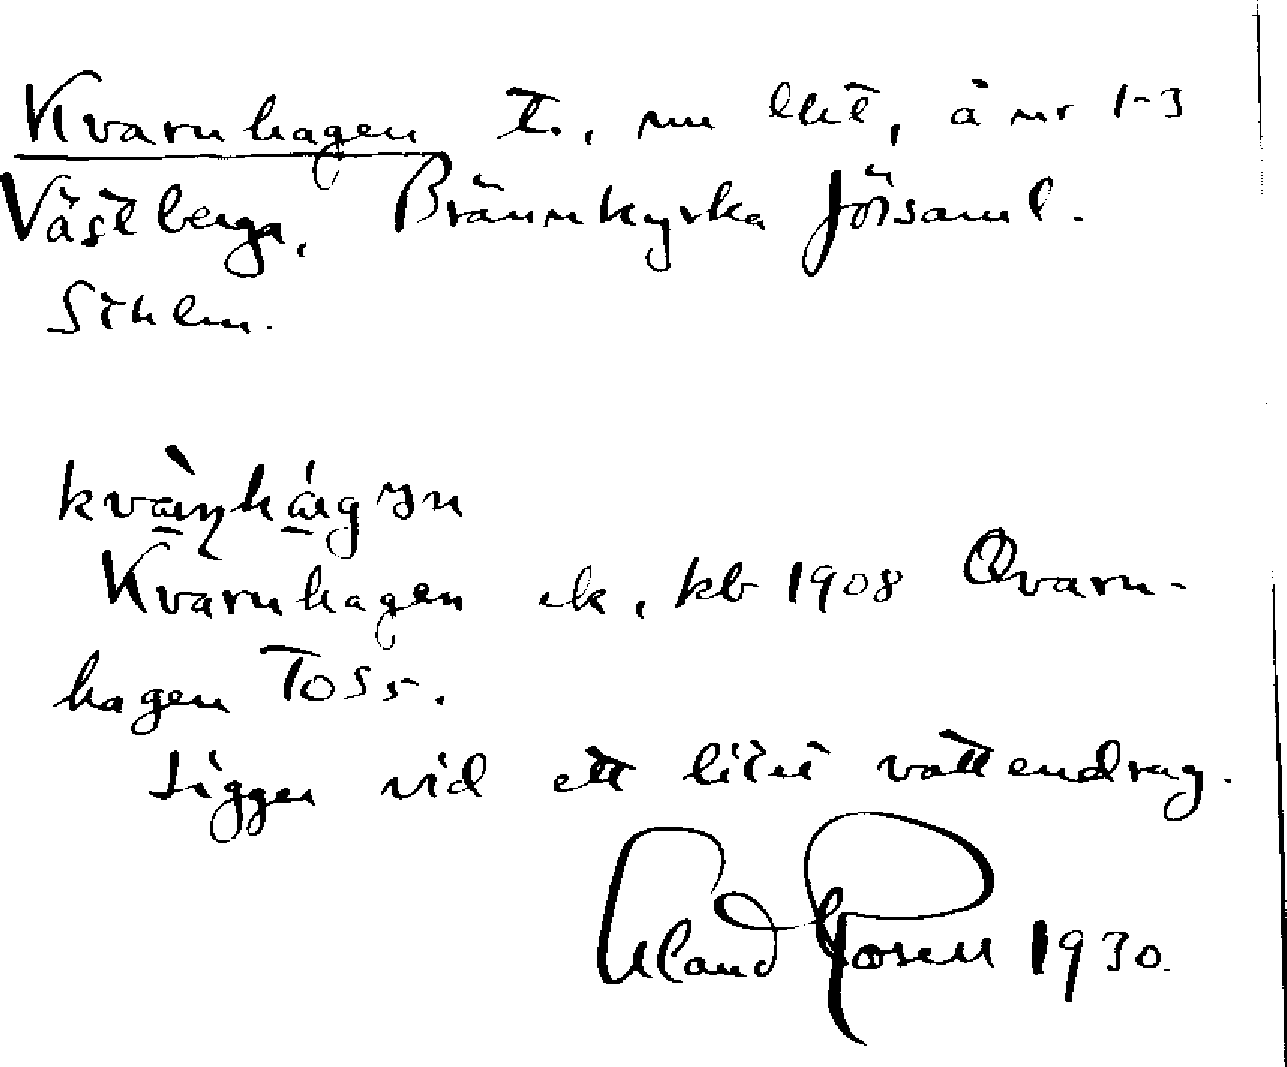 Kvarnhagen t., nu lht, å nr 1-3
Västberga, Brännkyrka församl.
Sthlm.
Kvarnhagen ek, kb 1908 Qvarn-
hagen Toss.
Ligger vid ett litet vattendrag.
Åland Rosell 1930.